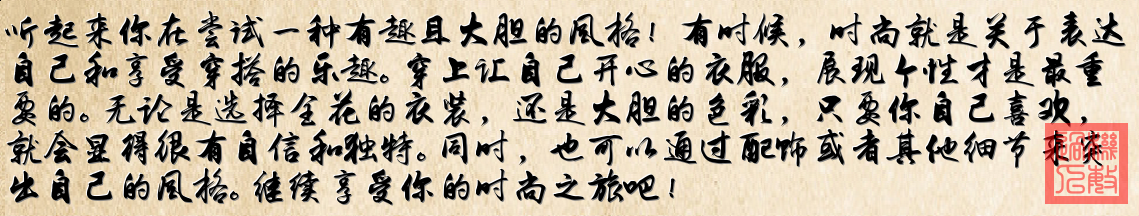 听起来你在尝试一种有趣且大胆的風格！有时候，时尚就是关于表达
自己和享受穿搭的乐趣。穿上让自己开心的衣服，展现个性才是最重
要的。无论是选择全花的衣装，还是大胆的色彩，只要你自己喜欢，
就会显得很有自信和独特。同时，也可以通过配饰或者其他细节来突
出自己的風格。继续享受你的时尚之旅吧！